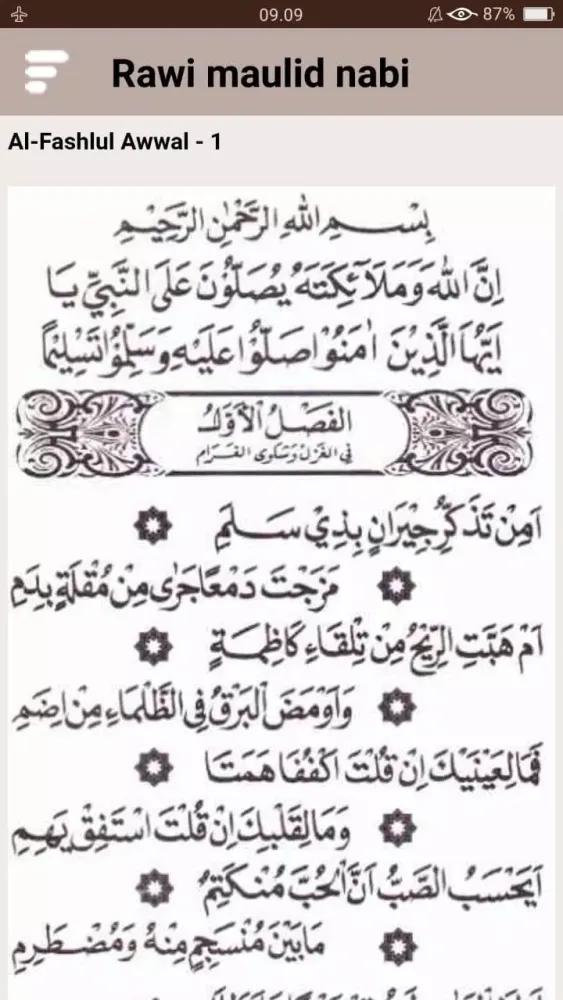 09.09
87%
Rawi maulid nabi
Al-Fashlul Awwal - 1
بِسْـــمِ اللهِ الرَّحْمٰنِ الرَّحِيْـمِ
اِنَّ اللهَ وَمَلَآئِكَتَهُ يُصَلُّوْنَ عَلَى النَّبِيِّ يَا
اَيُّهَا الَّذِيْنَ اٰمَنُوْا صَلُّوْا عَلَيْهِ وَسَلِّمُوْا تَسْلِيْمًا
الفَصْلُ الْاَوَّلُ
في الغزل وشكوى الغرام
اَمِنْ تَذَكُّرِ جِيْرَانٍ بِذِيْ سَـــلَمِ
مَزَجْتَ دَمْعًا جَرٰى مِنْ مُقْلَةٍ بِدَمِ
اَمْ هَبَّتِ الرِّيْحُ مِنْ تِلْقَاءِ كَاظِمَـةٍ
وَاَوْمَضَ الْبَرْقُ فِى الظَّلْمَاءِ مِنْ اِضَمِ
فَمَا لِعَيْنَيْكَ اِنْ قُلْتَ اكْفُفَا هَمَتَا
وَمَا لِقَلْبِكَ اِنْ قُلْتَ اسْتَفِقْ يَهِـمِ
اَيَحْسَبُ الصَّبُّ اَنَّ الْحُبَّ مُنْكَتِمٌ
مَا بَيْنَ مُنْسَجِمٍ مِنْهُ وَمُضْـطَرِمِ